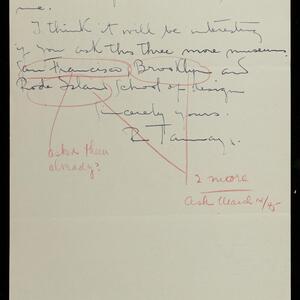 me.
I think it will be interesting
if you ask this three more museums.
San Francisco, Brooklyn and
Rode Island School of Design
Sincerely yours.
R Tamayo.
asked them
already?
2 more
Ask March